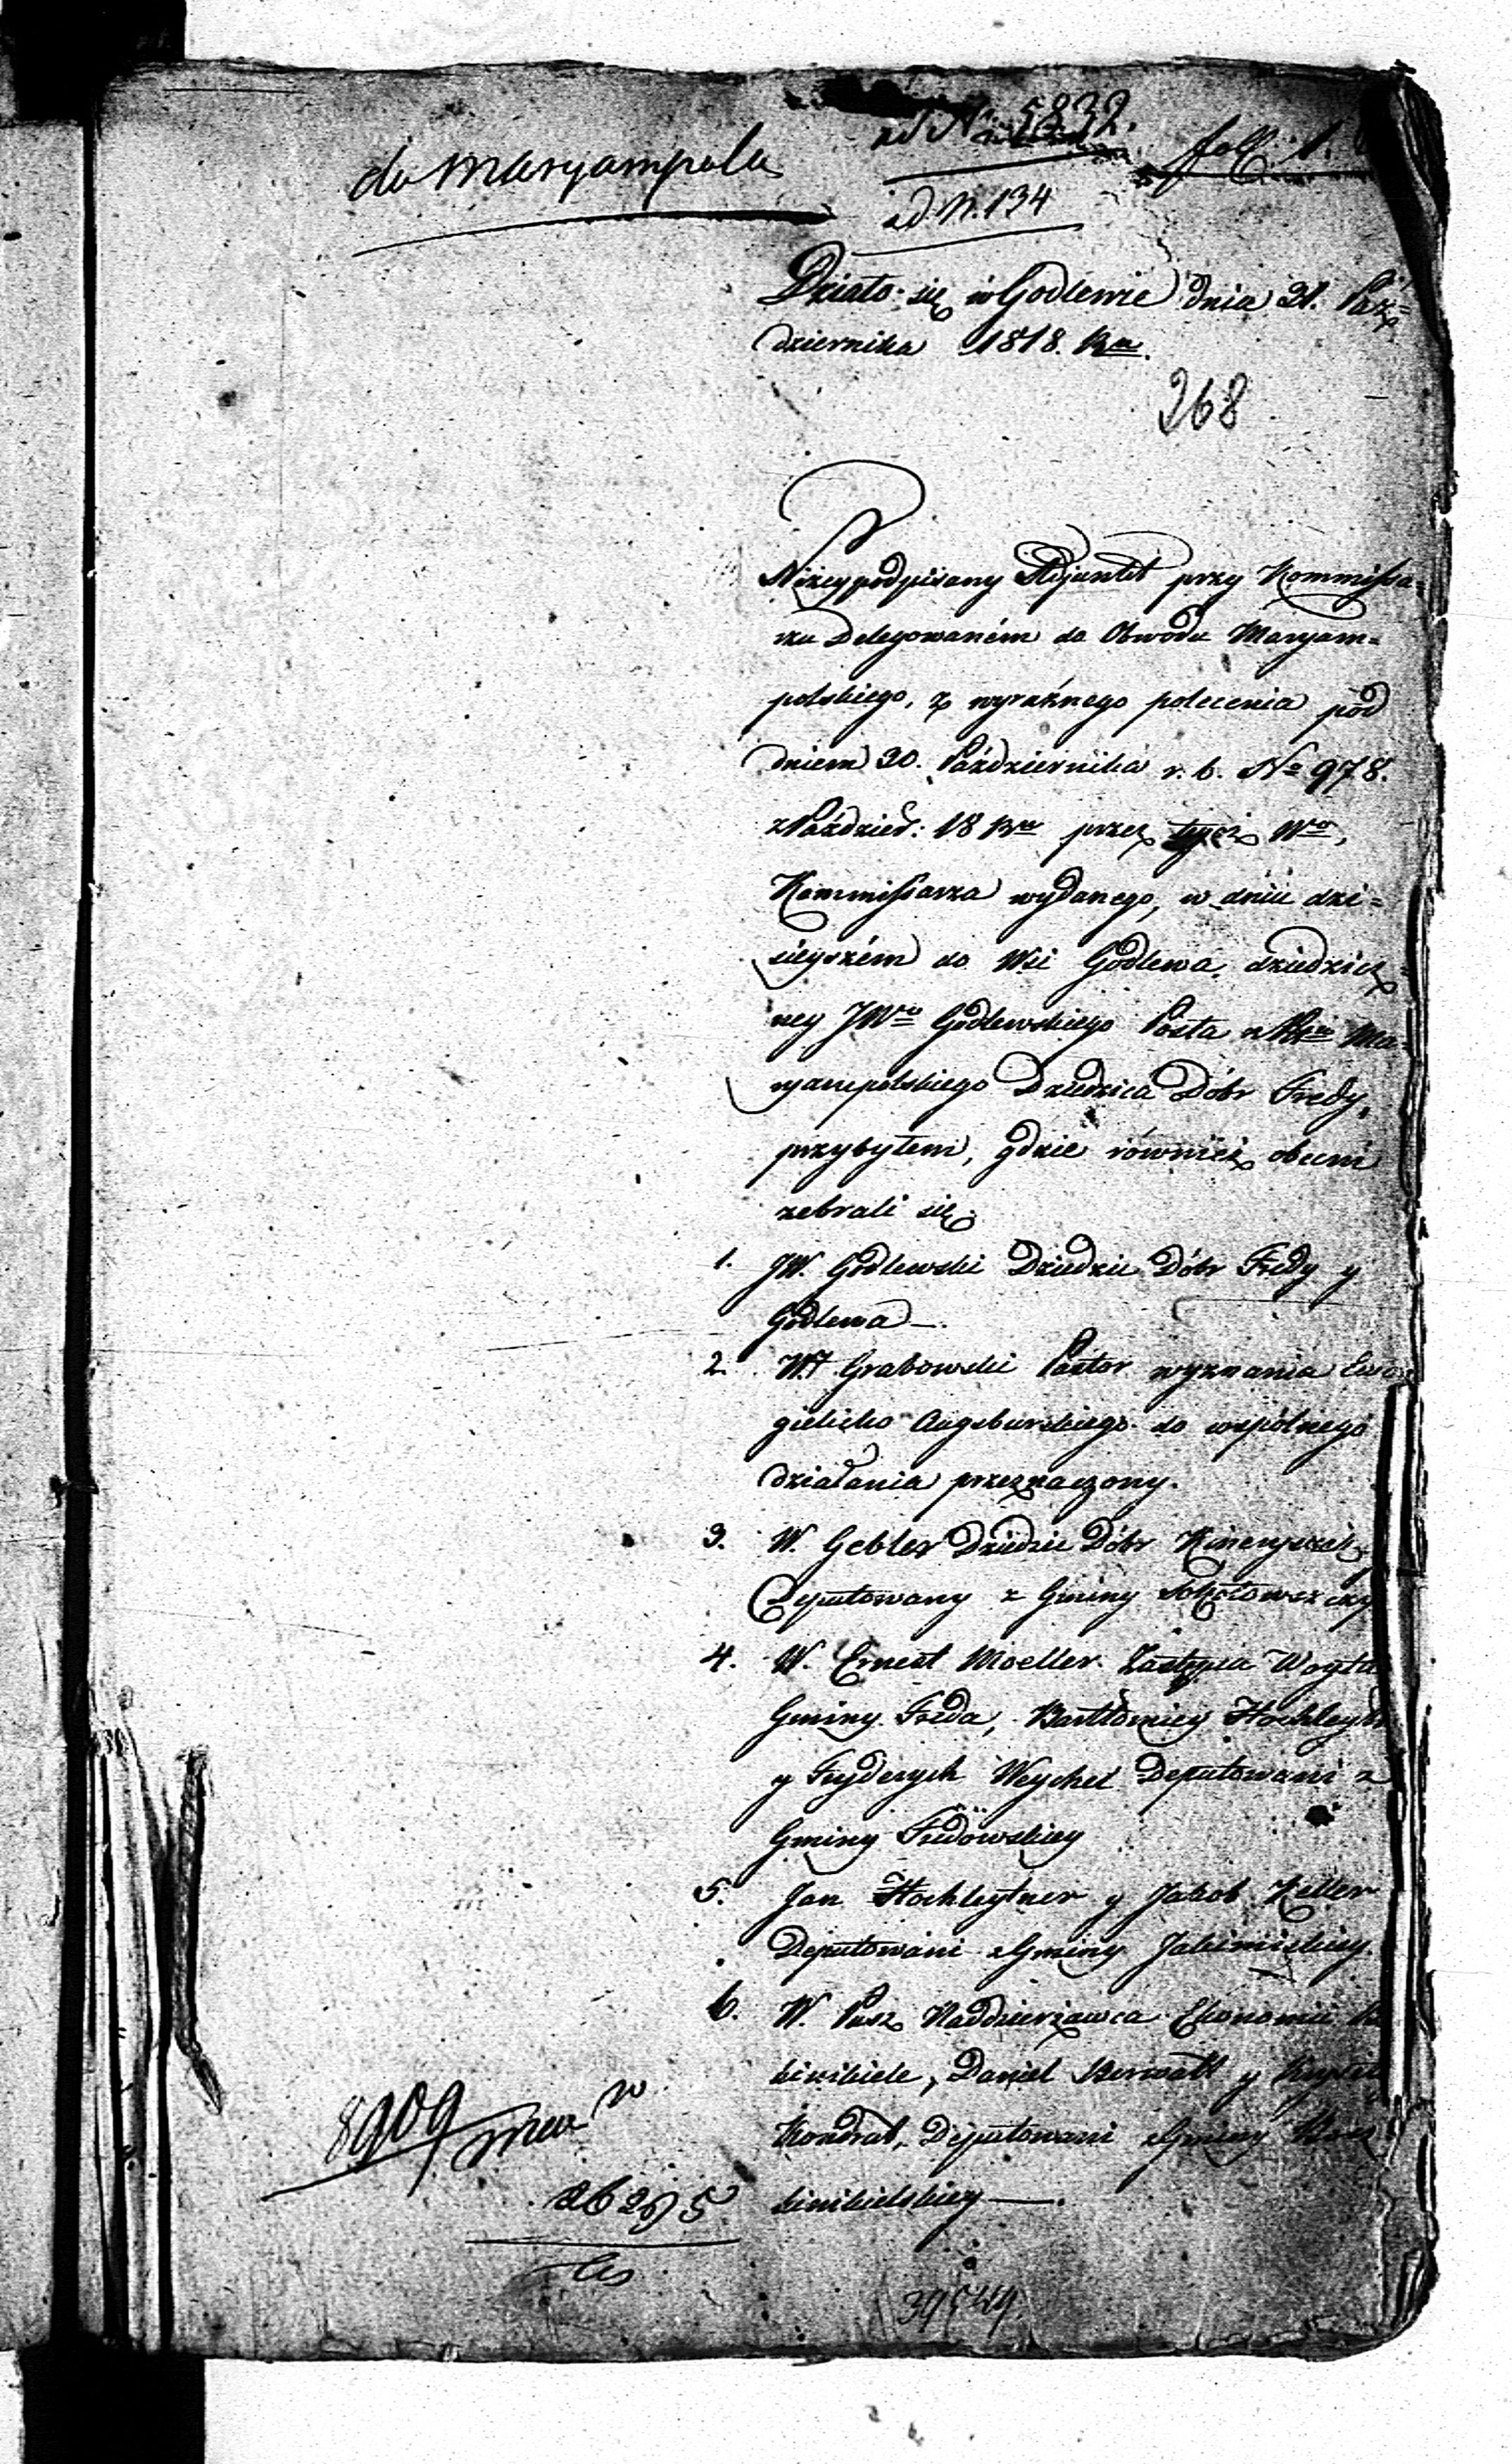 do Maryampola
ad N. 5832.
foll: 1.
ad. N. 134
Działo się w Godlewie dnia 31. Paź=
dziernika 1818. Rku.
268
Niżeypodpisany Adjunkt przy Kommissa=
rzu Delegowaném do Obwodu Maryam=
polskiego, z wyraźnego polecenia pod
dniem 30. Października r. b. No 978.
z Paździer: 18 przez tegoż Wo,
Kommissarza wydanego, w dniu dzi=
sieyszém do Wsi Godlewa, dziedzicz=
ney JWo Godlewskiego Posła z Ma=
ryampolskiego Dziedzica Dóbr Fredy,
przybyłem, gdzie również obecni
zebrali się.
1. JW. Godlewski Dziedzic Dóbr Fredy y
Godlewa —.
2. Grabowski Pastor wyznania Ewa
gielicko Augsburskiego do wspólnego
działania przeznaczony.
3. W. Gebler Dziedzic Dóbr
Deputowany z Gminy
4. W. Ernest Moeller Zastępca Woyta
Gminy Freda, Bartłomiey Hochleyt
y Fryderych Weychel Deputowani z
Gminy Fredowskiey
5. Jan Hochleytner y Jakob Keller
Deputowani z Gminy
6. W. Pusz Naddzierżawca Ekonomii
Daniel Berwalt y
Kondrat, Deputowani z Gminy
8909
26295
39549.